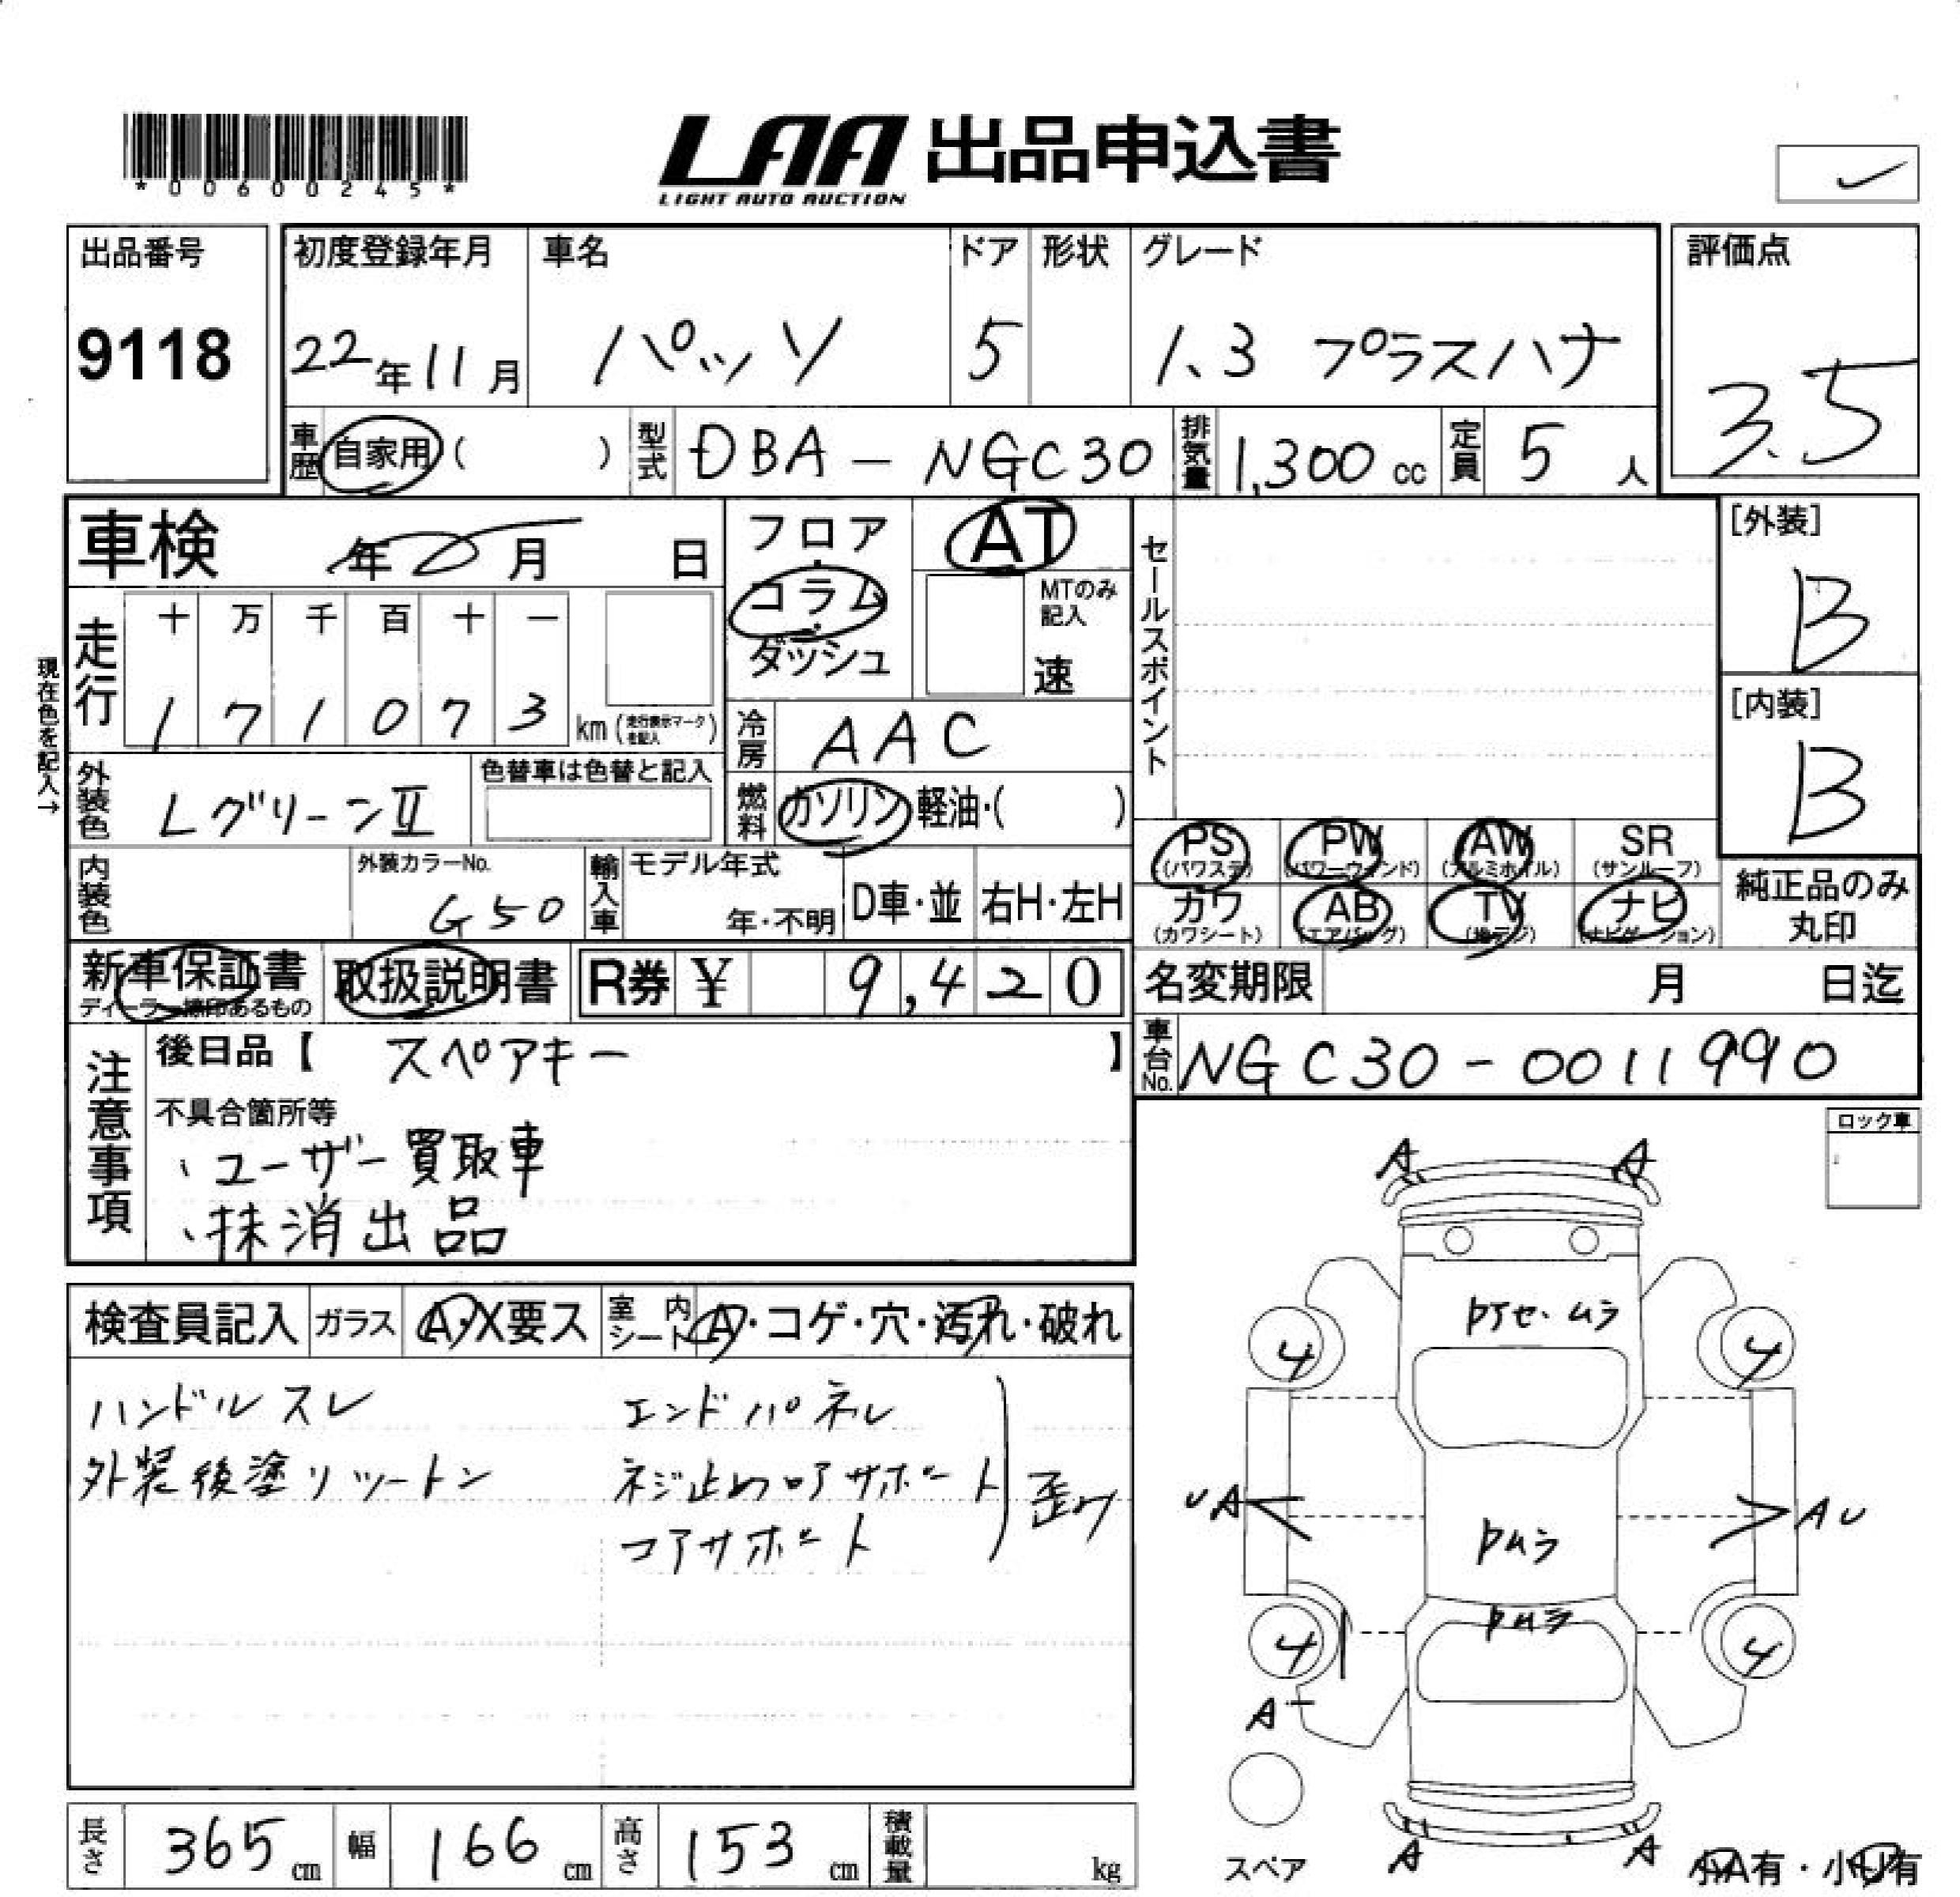 *00600245*
LAA 出品申込書
LIGHT AUTO AUCTION
出品番号
9118
初度登録年月 車名 ドア 形状 グレード
22年11月 パッソ 5 1.3 プラスハナ
評価点
3.5
車歴 自家用( ) 型式 DBA-NGC30 排気量 1,300cc 定員 5人
車検 年 月 日
フロア
コラム
ダッシュ
AT
MTのみ記入
速
セールスポイント
[外装]
B
[内装]
B
現在色を記入→
走行 十 万 千 百 十 一
1 7 1 0 7 3 km(走行表示マークを記入)
冷房 AAC
外装色 Lグリーン II 色替車は色替と記入
燃料 ガソリン・軽油・( )
内装色 外装カラーNo. G50
輸入車 モデル年式 年・不明 D車・並 右H・左H
PS(パワステ) PW(パワーウィンド) AW(アルミホイル) SR(サンルーフ)
カワ(カワシート) AB(エアバッグ) TV(地デジ) ナビ(ナビゲーション)
純正品のみ丸印
新車保証書 取扱説明書 R券 ¥ 9,420
名変期限 月 日迄
車台No. NGC30-0011990
注意事項
後日品【 スペアキー 】
不具合箇所等
、ユーザー買取車
、抹消出品
ロック車
検査員記入 ガラス A・X要ス 室内シート A・コゲ・穴・汚れ・破れ
ハンドルスレ エンドパネル
外装後塗りツートン ネジ止めコアサポート
コアサポート
歪ワ
A A
4 4
Pムラ
Pムラ
UA AU
4 4
A
A A
スペア
小A有・小U有
長さ 365cm 幅 166cm 高さ 153cm 積載量 kg